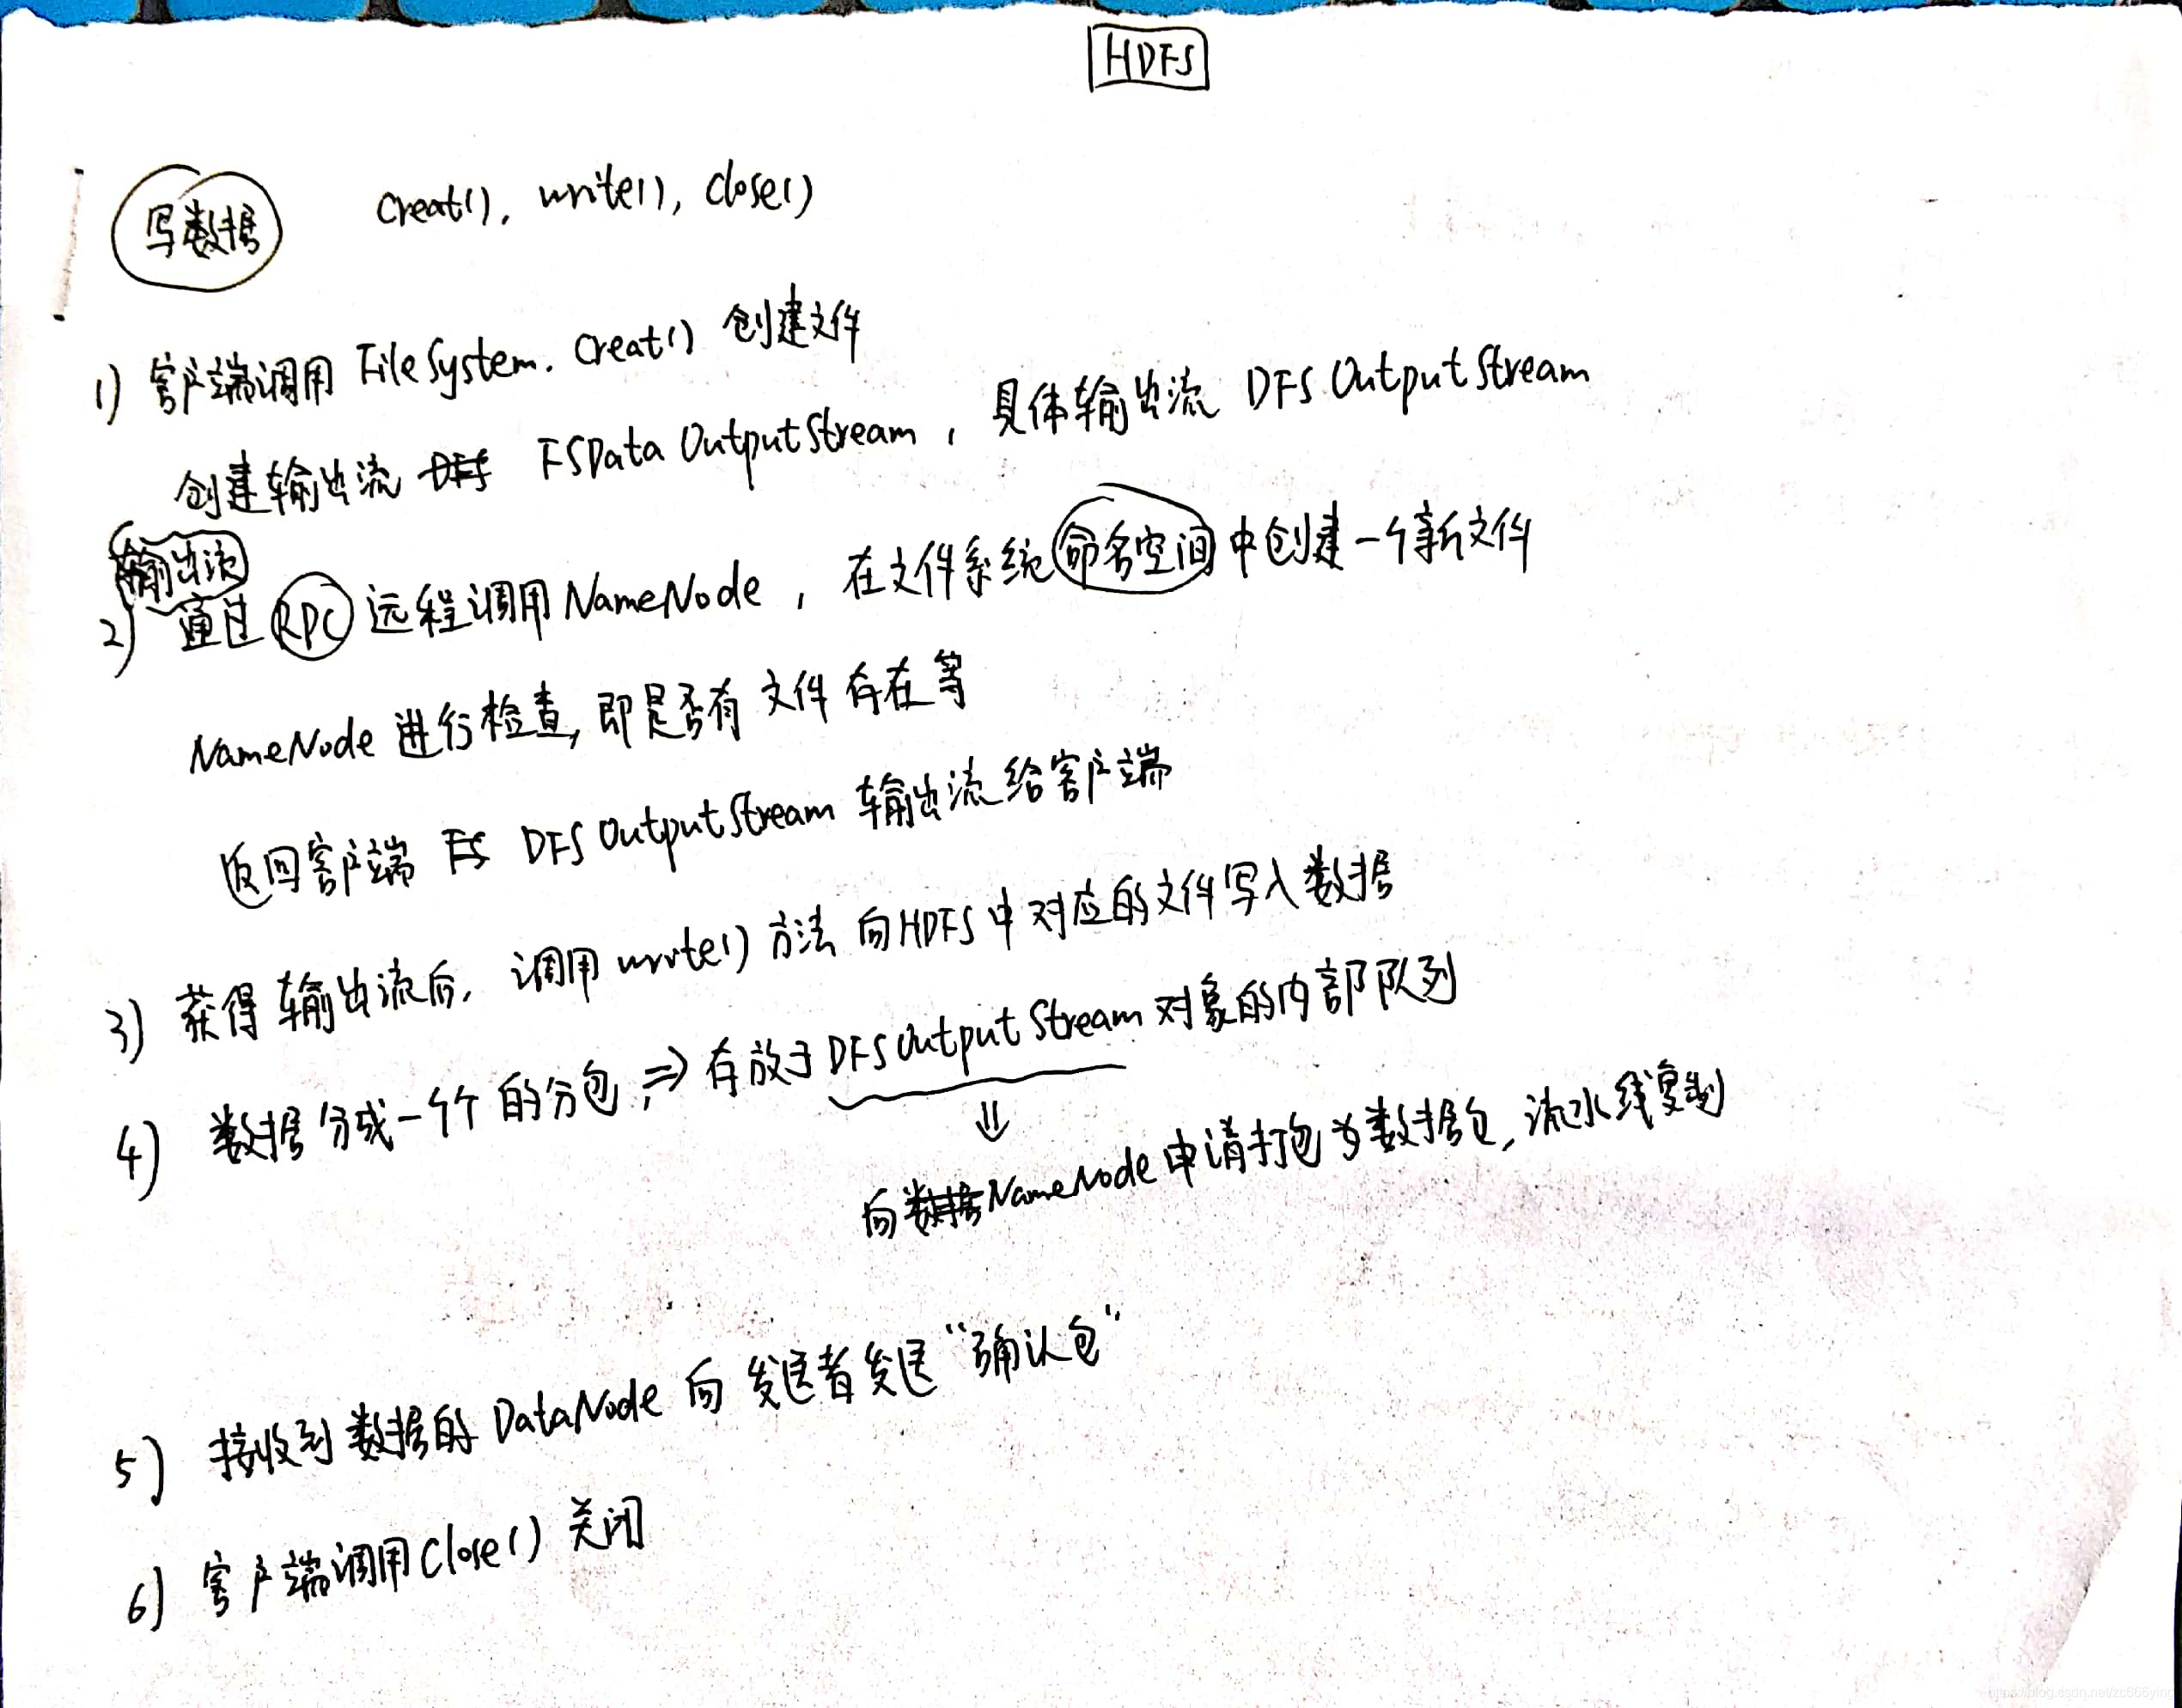 HDFS
写数据 creat(), write(), close()
1) 客户端调用 FileSystem. creat() 创建文件
创建输出流 FSData OutputStream , 具体输出流 DFS OutputStream
输出流
2) 通过 RPC 远程调用 NameNode , 在文件系统命名空间中创建一个新文件
NameNode 进行检查, 即是否有文件存在等
返回客户端 DFS OutputStream 输出流给客户端
3) 获得输出流后, 调用 write() 方法 向HDFS中对应的文件写入数据
4) 数据分成一个个的分包, ⇒ 存放于 DFSOutput Stream 对象的内部队列
⇓
向NameNode申请打包为数据包, 流水线复制
5) 接收到数据的 DataNode 向发送者发送 “确认包”
6) 客户端调用Close() 关闭